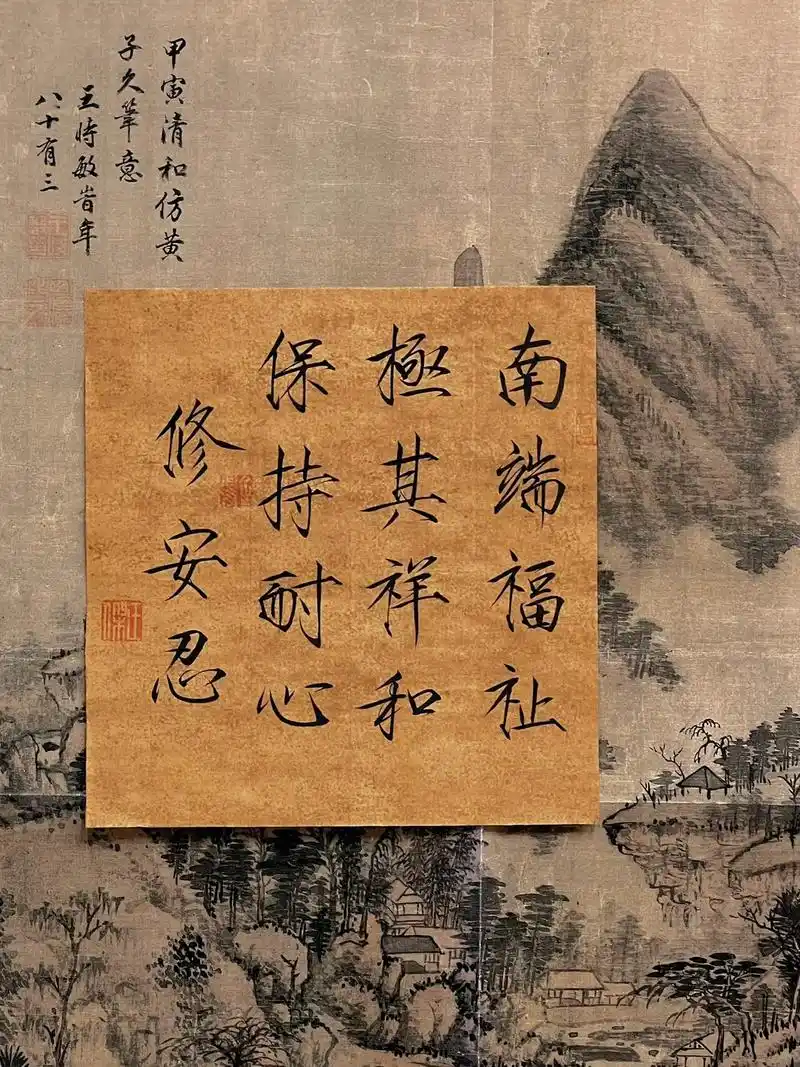 甲寅清和仿黄
子久筆意
王時敏旹年
八十有三
南端福祉
極其祥和
保持耐心
修安忍